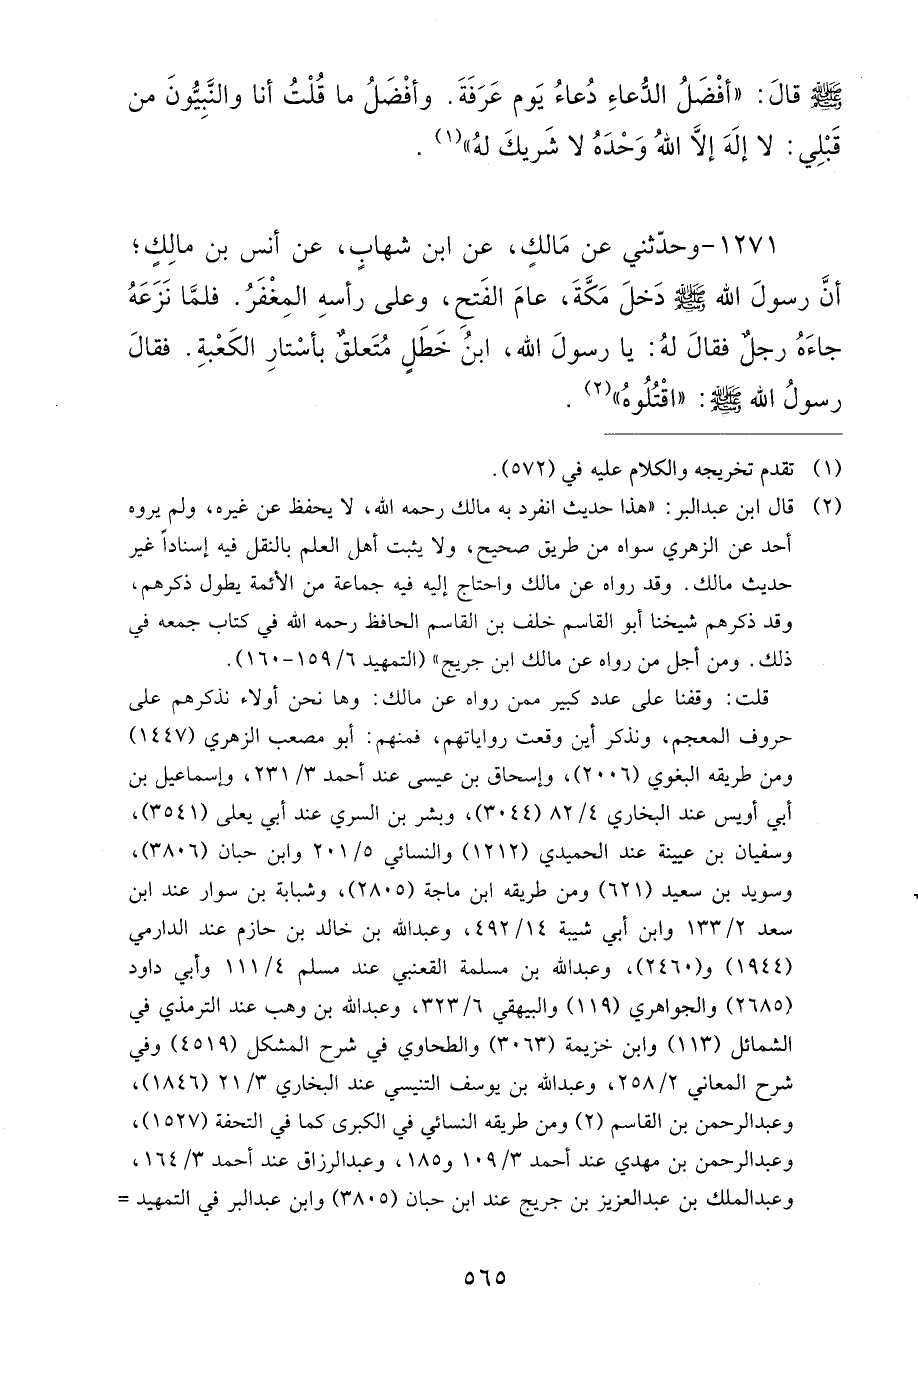 ﷺ قالَ: «أفْضَلُ الدُّعاءِ دُعاءُ يَوم عَرَفَةَ. وأفْضَلُ ما قُلْتُ أنا والنَّبِيُّونَ من
قَبْلِي: لا إلَهَ إلاَّ اللهُ وَحْدَهُ لا شَريكَ لهُ»(١) .
١٢٧١-وحدّثني عن مَالكٍ، عن ابن شهابٍ، عن أنس بن مالِكٍ؛
أنَّ رسولَ الله ﷺ دَخلَ مَكَّةَ، عامَ الفَتحِ، وعلى رأسهِ المِغْفَرُ. فلمَّا نَزَعَهُ
جاءَهُ رجلٌ فقالَ لهُ: يا رسولَ الله، ابنُ خَطَلٍ مُتَعلقٌ بأسْتارِ الكَعْبةِ. فقالَ
رسولُ الله ﷺ: «اقْتُلُوهُ»(٢) .
(١) تقدم تخريجه والكلام عليه في (٥٧٢).
(٢) قال ابن عبدالبر: «هذا حديث انفرد به مالك رحمه الله، لا يحفظ عن غيره، ولم يروه
أحد عن الزهري سواه من طريق صحيح، ولا يثبت أهل العلم بالنقل فيه إسناداً غير
حديث مالك. وقد رواه عن مالك واحتاج إليه فيه جماعة من الأئمة يطول ذكرهم،
وقد ذكرهم شيخنا أبو القاسم خلف بن القاسم الحافظ رحمه الله في كتاب جمعه في
ذلك. ومن أجل من رواه عن مالك ابن جريج» (التمهيد ٦/ ١٥٩-١٦٠).
قلت: وقفنا على عدد كبير ممن رواه عن مالك: وها نحن أولاء نذكرهم على
حروف المعجم، ونذكر أين وقعت رواياتهم، فمنهم: أبو مصعب الزهري (١٤٤٧)
ومن طريقه البغوي (٢٠٠٦)، وإسحاق بن عيسى عند أحمد ٣/ ٢٣١، وإسماعيل بن
أبي أويس عند البخاري ٤/ ٨٢ (٣٠٤٤)، وبشر بن السري عند أبي يعلى (٣٥٤١)،
وسفيان بن عيينة عند الحميدي (١٢١٢) والنسائي ٥/ ٢٠١ وابن حبان (٣٨٠٦)،
وسويد بن سعيد (٦٢١) ومن طريقه ابن ماجة (٢٨٠٥)، وشبابة بن سوار عند ابن
سعد ٢/ ١٣٣ وابن أبي شيبة ١٤/ ٤٩٢، وعبدالله بن خالد بن حازم عند الدارمي
(١٩٤٤) و(٢٤٦٠)، وعبدالله بن مسلمة القعنبي عند مسلم ٤/ ١١١ وأبي داود
(٢٦٨٥) والجواهري (١١٩) والبيهقي ٦/ ٣٢٣، وعبدالله بن وهب عند الترمذي في
الشمائل (١١٣) وابن خزيمة (٣٠٦٣) والطحاوي في شرح المشكل (٤٥١٩) وفي
شرح المعاني ٢/ ٢٥٨، وعبدالله بن يوسف التنيسي عند البخاري ٣/ ٢١ (١٨٤٦)،
وعبدالرحمن بن القاسم (٢) ومن طريقه النسائي في الكبرى كما في التحفة (١٥٢٧)،
وعبدالرحمن بن مهدي عند أحمد ٣/ ١٠٩ و١٨٥، وعبدالرزاق عند أحمد ٣/ ١٦٤،
وعبدالملك بن عبدالعزيز بن جريج عند ابن حبان (٣٨٠٥) وابن عبدالبر في التمهيد =
٥٦٥